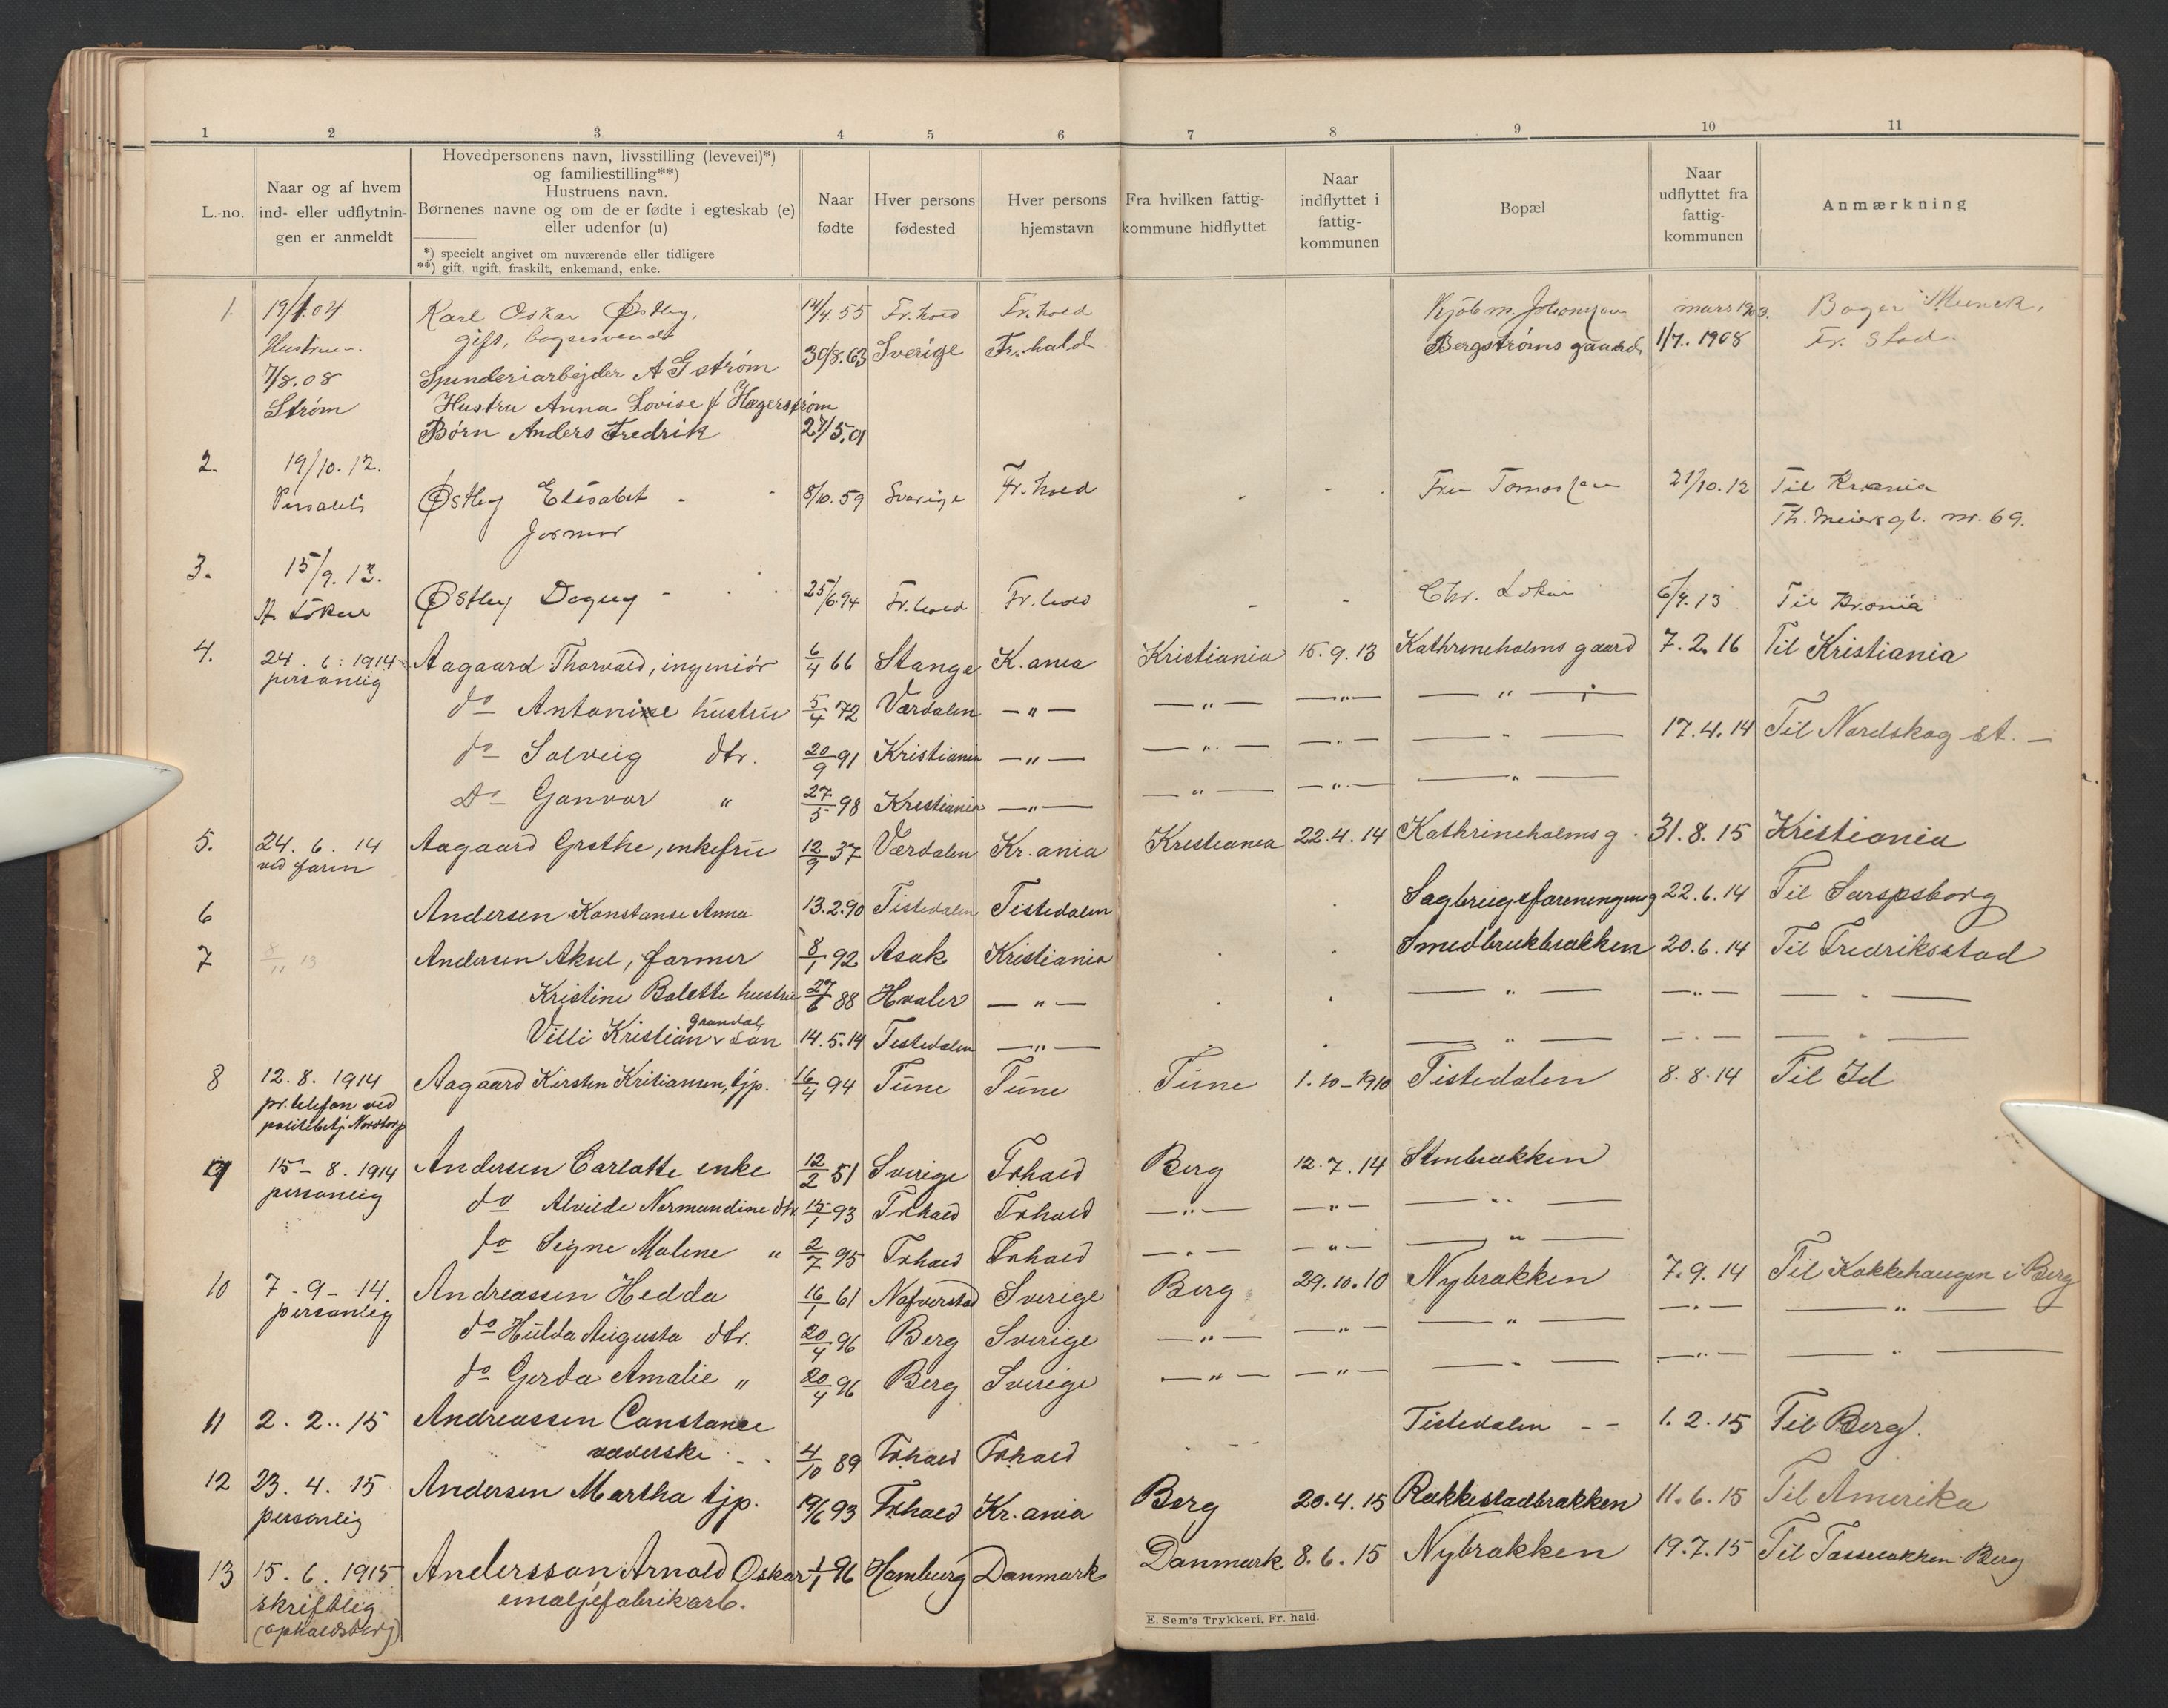 1 2 3 4 5 6 7 8 9 10 11
L.-no.
Naar og af hvem
ind- eller udflytnin-
gen er anmeldt
Hovedpersonens navn, livsstilling (levevei)*)
og familiestilling**)
Hustruens navn.
Børnenes navne og om de er fødte i egteskab (e)
eller udenfor (u)
*) specielt angivet om nuværende eller tidligere
**) gift, ugift, fraskilt, enkemand, enke.
Naar
fødte
Hver persons
fødested
Hver persons
hjemstavn
Fra hvilken fattig-
kommune hidflyttet
Naar
indflyttet i
fattig-
kommunen
Bopæl
Naar
udflyttet fra
fattig-
kommunen
Anmærkning
1. 19/1.04 Karl Oskar Østby, 14/4.55 Fr.hald Fr.hald Kjøbm. Johansen mars 1903. Bager Munck,
Hustruen. gift, bagersvend Fr. Stad.
7/8.08 Spinderiarbejder A G Strøm 30/8.63 Sverige Fr.hald Bergstrøms gaard 1/7.1908
Strøm Hustru Anna Lovise f Hægerstrøm
Børn Anders Fredrik 27/5.01
2. 19/10.12.
Østby Elisabet 8/10.59 Sverige Fr.hald Fru 21/10.12 Til Kr.ania
Th. Meiers gt. nr. 69.
3. 15/9.13.
A. Løken Østby Dagny 25/6.94 Fr.hald Fr.hald Chr. Løken 6/9.13 Til Kr.ania
4. 24.6.1914 Aagaard Thorvald, ingeniør 6/4 66 Stange K.ania Kristiania 15.9.13 Kathrineholms gaard 7.2.16 Til Kristiania
personlig
do Antonie hustru 5/4 72 Værdalen — " — — " — — " — — " —
do Solveig dtr. 20/9 91 Kristiania — " — — " — — " — — " — 17.4.14 Til Nordskog st. —
Do Gunvor " 27/5 98 Kristiania — " — — " — — " — — " —
5. 24.6.14 Aagaard Grethe, enkefru 12/9 37 Værdalen Kr.ania Kristiania 22.4.14 Kathrineholms g. 31.8.15 Kristiania
6 Andersen Konstanse Anna 13.2.90 Tistedalen Tistedalen 22.6.14 Til Sarpsborg
7 8/11 13 Andersen Aksel, former 8/1 92 Asak Kristiania Smedbrukbrakken 20.6.14 Til Fredriksstad
Kristine Balette hustru 27/6 88 Hvaler — " — — " — — " — — " —
Grandal
Villi Kristian v søn 14.5.14 Tistedalen — " — — " — — " — — " —
8 12.8.1914 Aagaard Kirsten Kritiansen, tjp. 16/4 94 Tune Tune Tune 1.10-1910 Tistedalen 8.8.14 Til Id
pr. telefon ved
politibetj. Nordtorp
9 15-8.1914 Andersen Carlotte enke 12/2 51 Sverige Frhald Berg 12.7.14 Stenbrakken
personlig
do Alvilde Normandine dtr. 15/1 93 Frhald Frhald — " — — " — — " —
do Signe Malene " 2/7 95 Frhald Frhald — " — — " — — " —
10 7-9-14. Andreassen Hedda 16/1 61 Nafverstad Sverige Berg 29.10.10 Nybrakken 7.9.14 Til Kokkehaugen i Berg
personlig
do Hulda Augusta dtr. 20/4 96 Berg Sverige — " — — " — — " — — " — — " —
do Gerda Amalie " 20/4 96 Berg Sverige — " — — " — — " — — " — — " —
11 2.2..15 Andreassen Constance Tistedalen - - 1.2.15 Til Berg.
væverske 4/10 89 Frhald Frhald
12 23.4.15 Andersen Martha tjp. 19/6 93 Fr.hald Kr.ania Berg 20.4.15 Rakkestadbrakken 11.6.15 Til Amerika
personlig
13 15.6.1915 Andersson Arnold Oskar 1/1 96 Hamburg Danmark Danmark 8.6.15 Nybrakken 19.7.15 Til Berg
skriftlig emaljefabrikarb.
E. Sem's Trykkeri, Fr. hald.